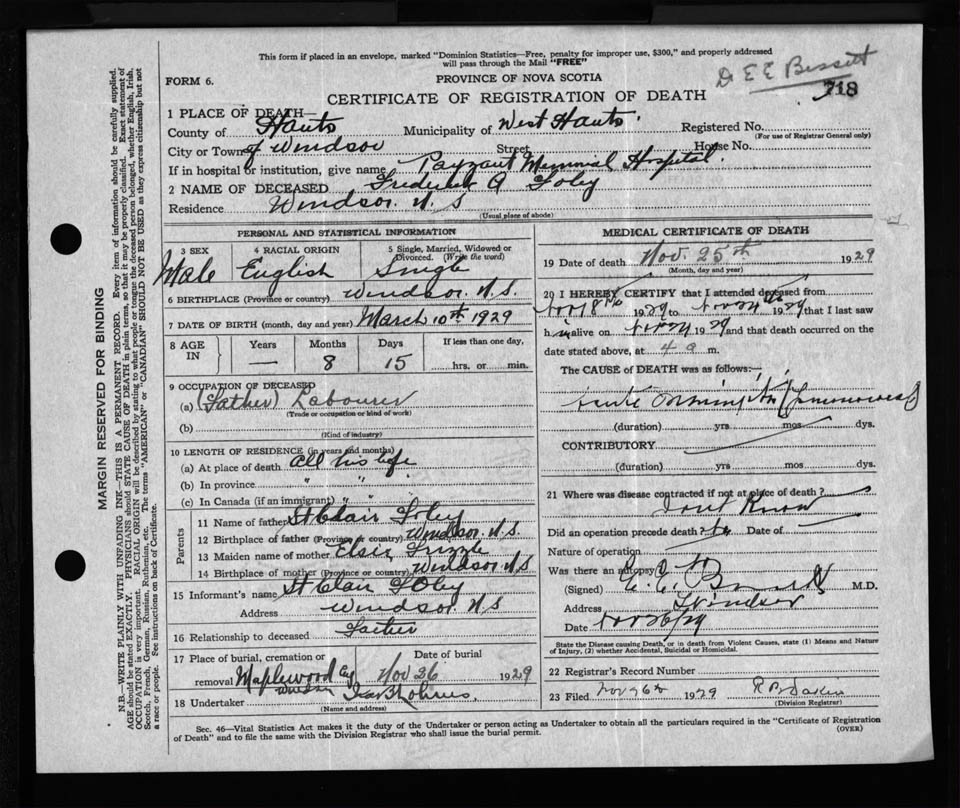 This form if placed in an envelope, marked "Dominion Statistics—Free, penalty for improper use, $300," and properly addressed
will pass through the Mail "FREE"
Dr E E Bissett
718
FORM 6.
PROVINCE OF NOVA SCOTIA
CERTIFICATE OF REGISTRATION OF DEATH
1 PLACE OF DEATH—
County of Hants Municipality of West Hants. Registered No.
(For use of Registrar General only)
City or Town of Windsor Street House No.
If in hospital or institution, give name Payzant Memorial Hospital.
2 NAME OF DECEASED Frederick A Foley
Residence Windsor. N. S
(Usual place of abode)
PERSONAL AND STATISTICAL INFORMATION
3 SEX 4 RACIAL ORIGIN 5 Single, Married, Widowed or Divorced. (Write the word)
Male English Single
6 BIRTHPLACE (Province or country) Windsor. N.S.
7 DATE OF BIRTH (month, day and year) March 10th 1929
8 AGE IN Years Months Days If less than one day,
— 8 15 hrs. or min.
9 OCCUPATION OF DECEASED
(a) (Father) Labourer
(Trade or occupation or kind of work)
(b)
(Kind of industry)
10 LENGTH OF RESIDENCE (in years and months)
(a) At place of death all his life
(b) In province " "
(c) In Canada (if an immigrant) " "
Parents
11 Name of father St Clair Foley
12 Birthplace of father (Province or country) Windsor, N.S.
13 Maiden name of mother Elsie Frizzle
14 Birthplace of mother (Province or country) Windsor N S
15 Informant's name St Clair Foley
Address Windsor. N.S
16 Relationship to deceased Father
17 Place of burial, cremation or removal Maplewood Cy Windsor
Date of burial Nov 26 1929
18 Undertaker
(Name and address)
MEDICAL CERTIFICATE OF DEATH
19 Date of death Nov. 25th 1929
(Month, day and year)
20 I HEREBY CERTIFY that I attended deceased from
1929 to 1929 that I last saw
him alive on 1929 and that death occurred on the
date stated above, at 4 a m.
The CAUSE of DEATH was as follows:—
(duration) yrs mos dys.
CONTRIBUTORY
(duration) yrs mos dys.
21 Where was disease contracted if not at place of death?
Dont Know
Did an operation precede death? Date of
Nature of operation
Was there an autopsy?
(Signed) M.D.
Address Windsor
Date Nov 26/29
State the Disease causing Death, or in death from Violent Causes, state (1) Means and Nature
of Injury, (2) whether Accidental, Suicidal or Homicidal.
22 Registrar's Record Number
23 Filed Nov 26th 1929
(Division Registrar)
Sec. 46—Vital Statistics Act makes it the duty of the Undertaker or person acting as Undertaker to obtain all the particulars required in the "Certificate of Registration
of Death" and to file the same with the Division Registrar who shall issue the burial permit.
(OVER)
MARGIN RESERVED FOR BINDING
N.B.—WRITE PLAINLY WITH UNFADING INK—THIS IS A PERMANENT RECORD. Every item of information should be carefully supplied.
AGE should be stated EXACTLY. PHYSICIANS should STATE CAUSE OF DEATH in plain terms, so that it may be properly classified. Exact statement of
OCCUPATION is very important. RACIAL ORIGIN will be described by stating to what people or tongue the deceased person belonged, whether English, Irish,
Scotch, French, German, Russian, Ruthenian, etc. The terms "AMERICAN" or "CANADIAN" SHOULD NOT BE USED as they express citizenship but not
a race or people. See instructions on back of Certificate.